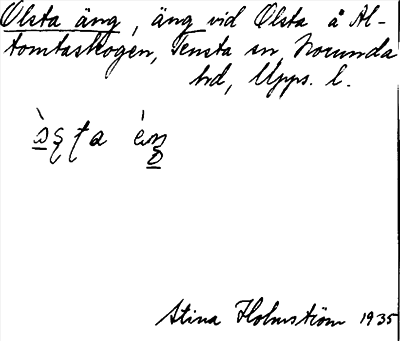 Ølsta äng, äng vid Ølsta å Al-
tomtaskogen, Tensta sn, Norunda
hd, Upps. l.
Stina Holmström 1935